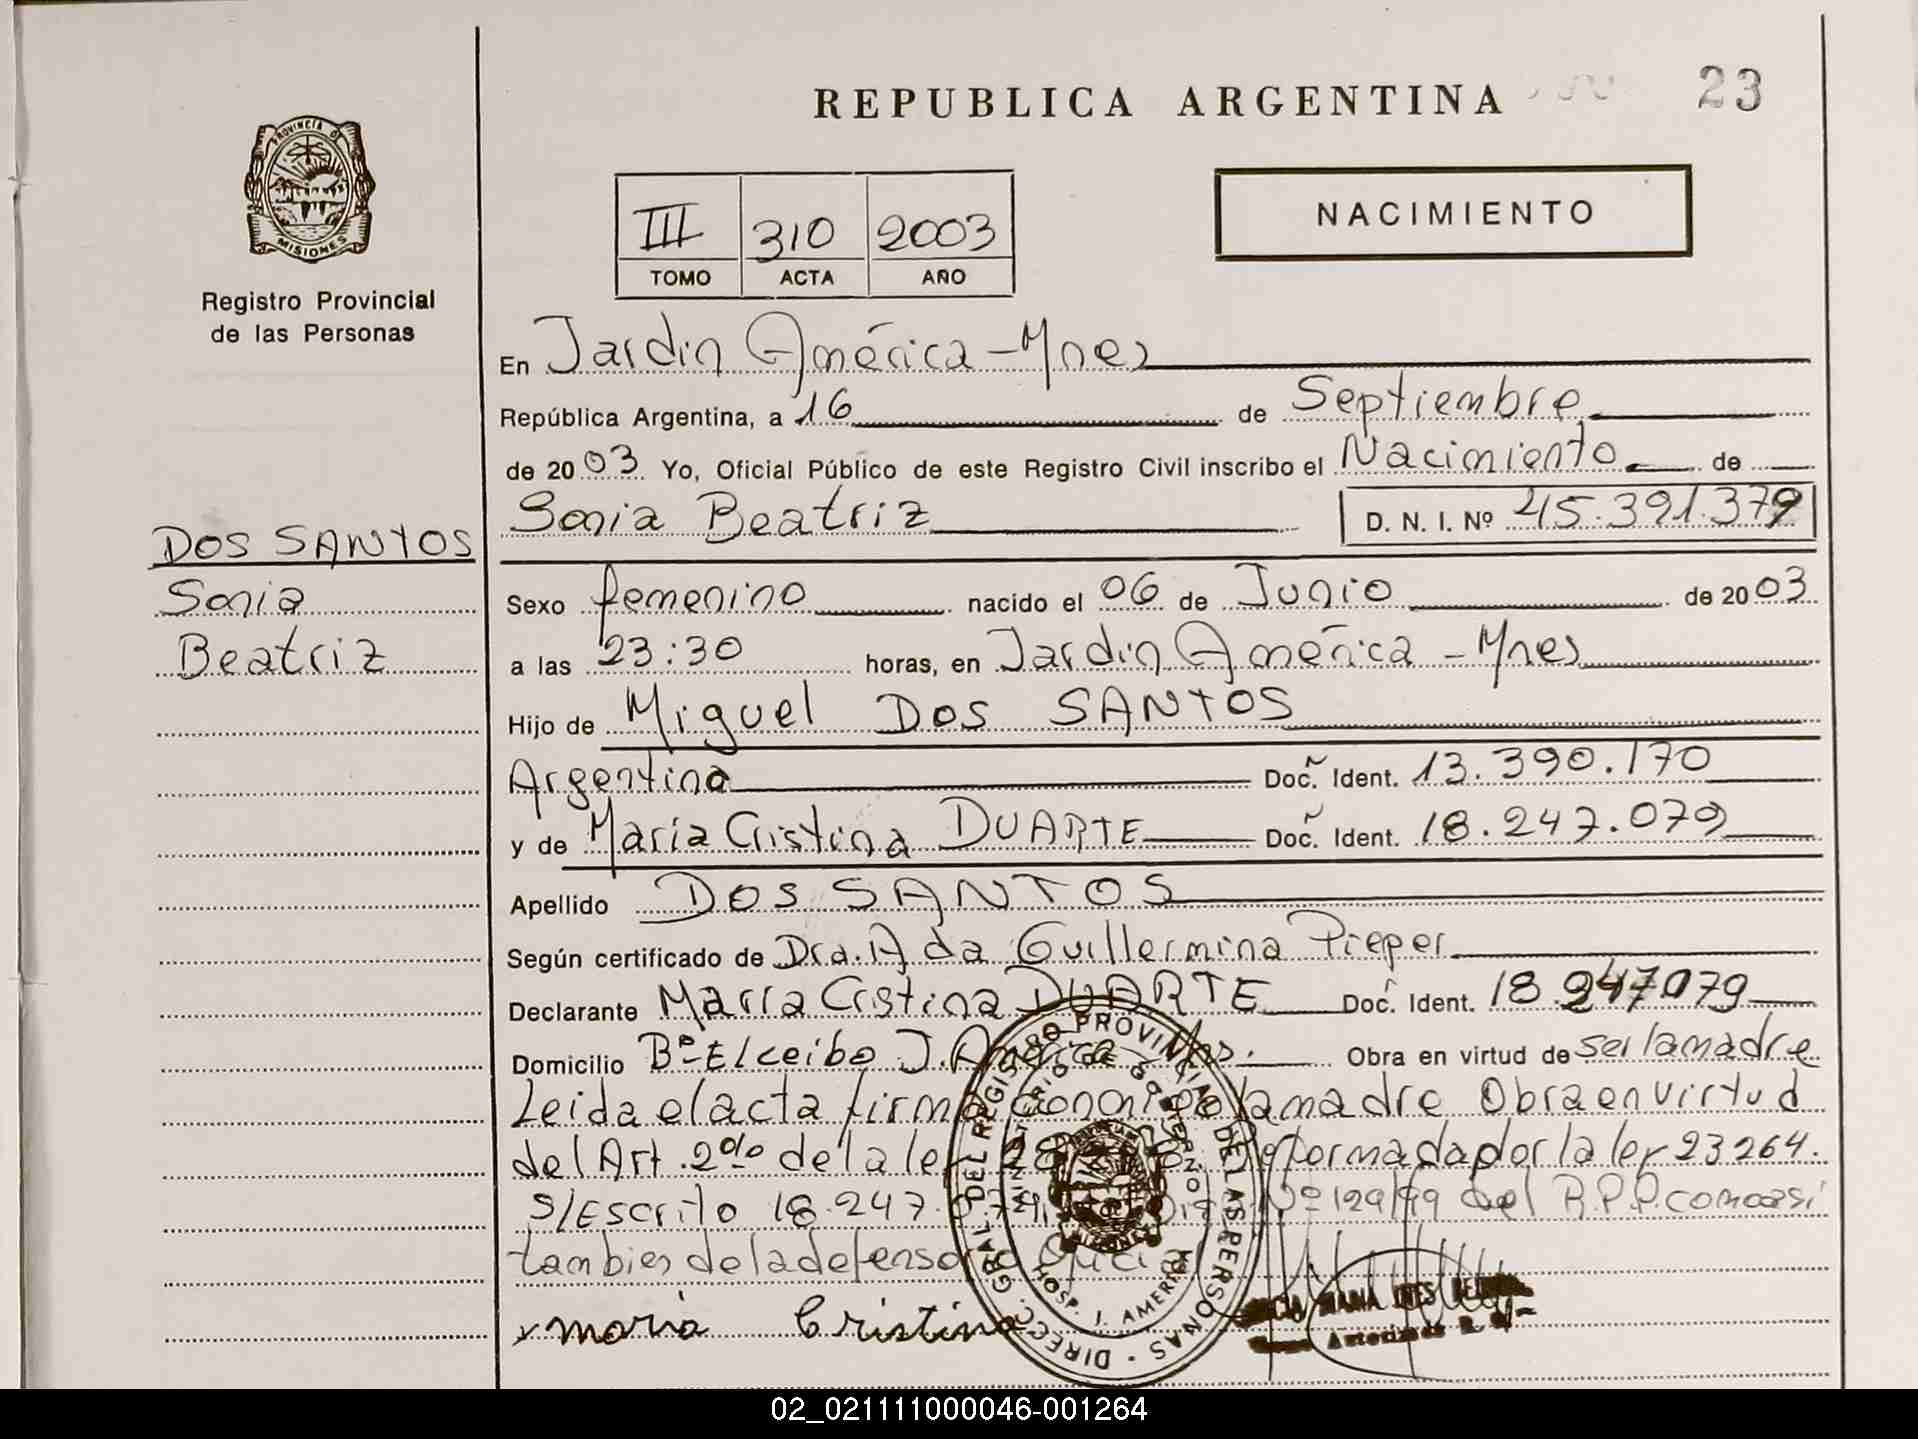 REPUBLICA ARGENTINA
23
PROVINCIA DE
MISIONES
Registro Provincial
de las Personas
III 310 2003
TOMO ACTA AÑO
NACIMIENTO
En Jardin América - Mnes
República Argentina, a 16 de Septiembre
de 2003 Yo, Oficial Público de este Registro Civil inscribo el Nacimiento de
Sonia Beatriz D. N. I. Nº 45.391.379
DOS SANTOS
Sonia
Beatriz
Sexo femenino nacido el 06 de Junio de 2003
a las 23:30 horas, en Jardin América - Mnes
Hijo de Miguel DOS SANTOS
Argentina Doc. Ident. 13.390.170
y de María Cristina DUARTE Doc. Ident. 18.247.079
Apellido DOS SANTOS
Según certificado de Dra. Ada Guillermina Pieper
Declarante María Cristina DUARTE Doc. Ident. 18.247079
Domicilio Bº El Ceibo J. América Obra en virtud de ser la madre
Leida el acta firma la madre Obra en virtud
del Art. 2º de la ley reformada por la ley 23264.
S/Escrito 18.247. Nº 129/99 del R.P.P. como asi
tambien de la defensora Oficial
x maria Cristina
DIRECC. GRAL. DEL REGISTRO PROVINCIAL DE LAS PERSONAS
MINISTERIO DE GOBIERNO
MISIONES
HOSP. J. AMERICA
MARIA INES
02_021111000046-001264